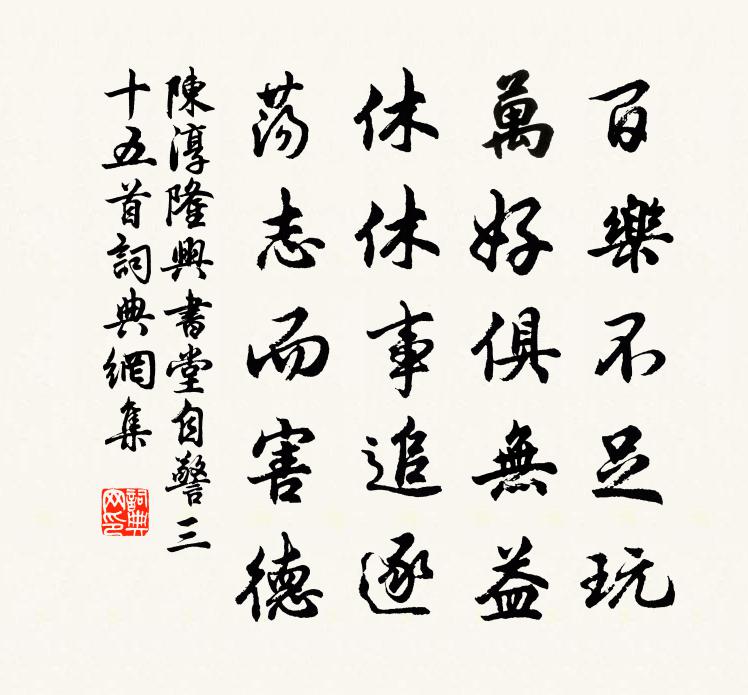 百樂不足玩
萬好俱無益
休休事追逐
蕩志而害德
陳淳隆興書堂自警三
十五首詞典網集
詞典
网印